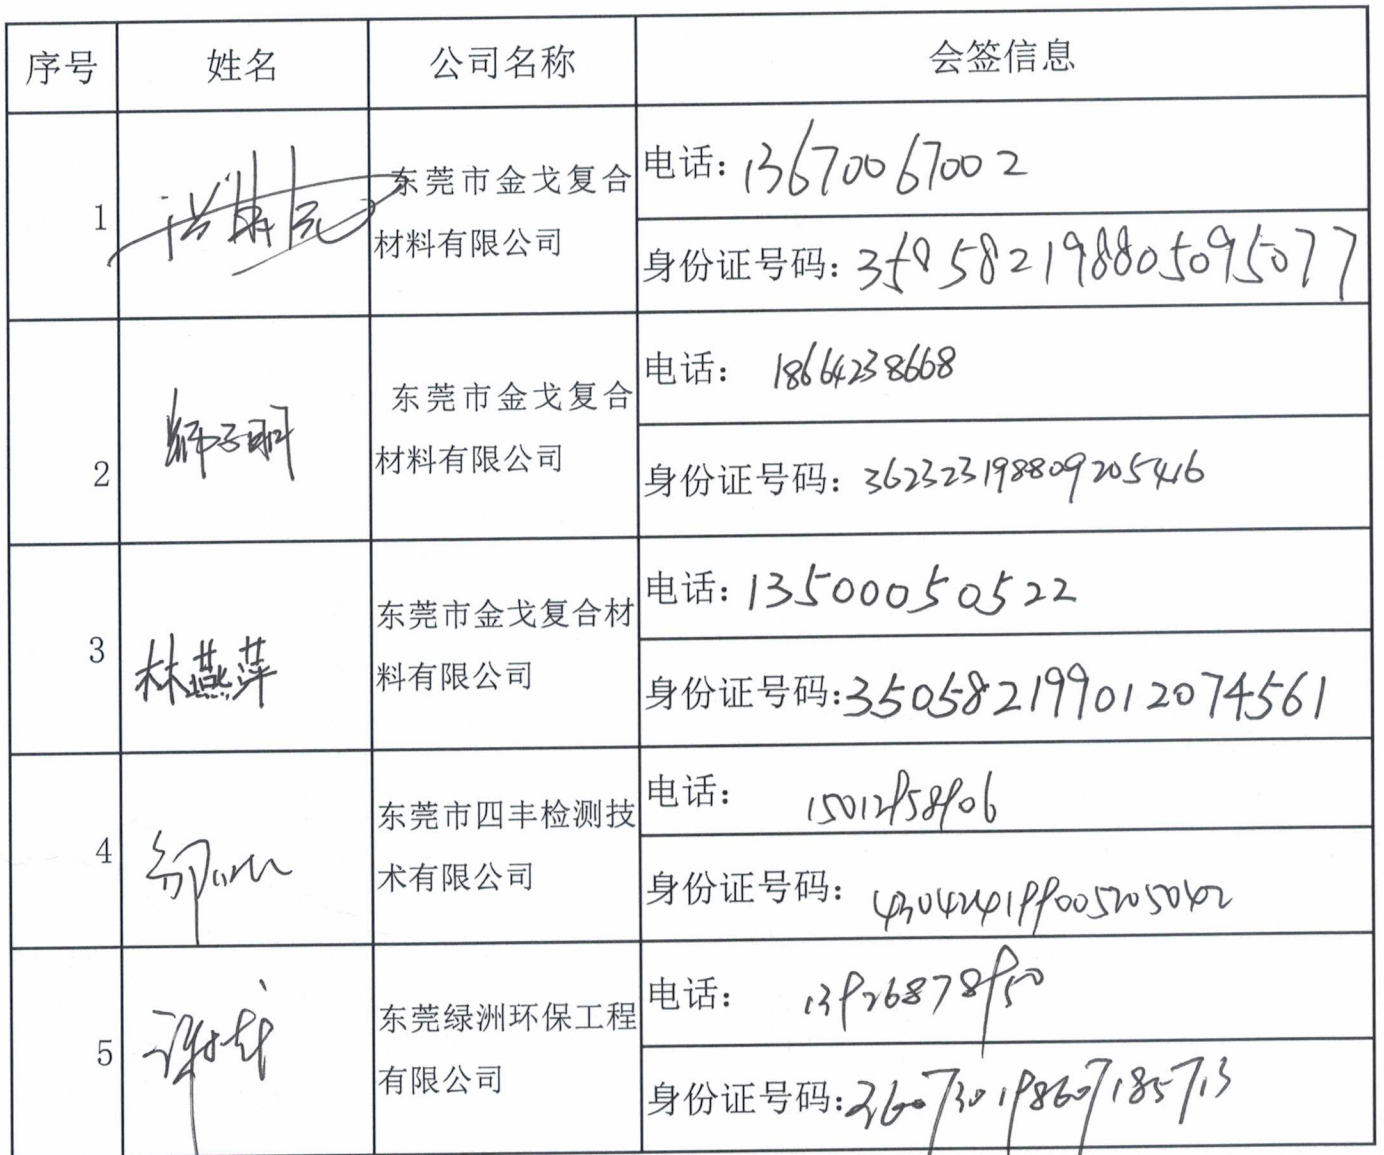 序号 姓名 公司名称 会签信息
1
东莞市金戈复合
材料有限公司
电话：13670067002
身份证号码：
2
东莞市金戈复合
材料有限公司
电话：18664238668
身份证号码：362323198809205416
3
林燕萍
东莞市金戈复合材
料有限公司
电话：13500050522
身份证号码：350582199012074561
4
东莞市四丰检测技
术有限公司
电话：15012958906
身份证号码：430424199005205042
5
东莞绿洲环保工程
有限公司
电话：13926878950
身份证号码：360730198607185713